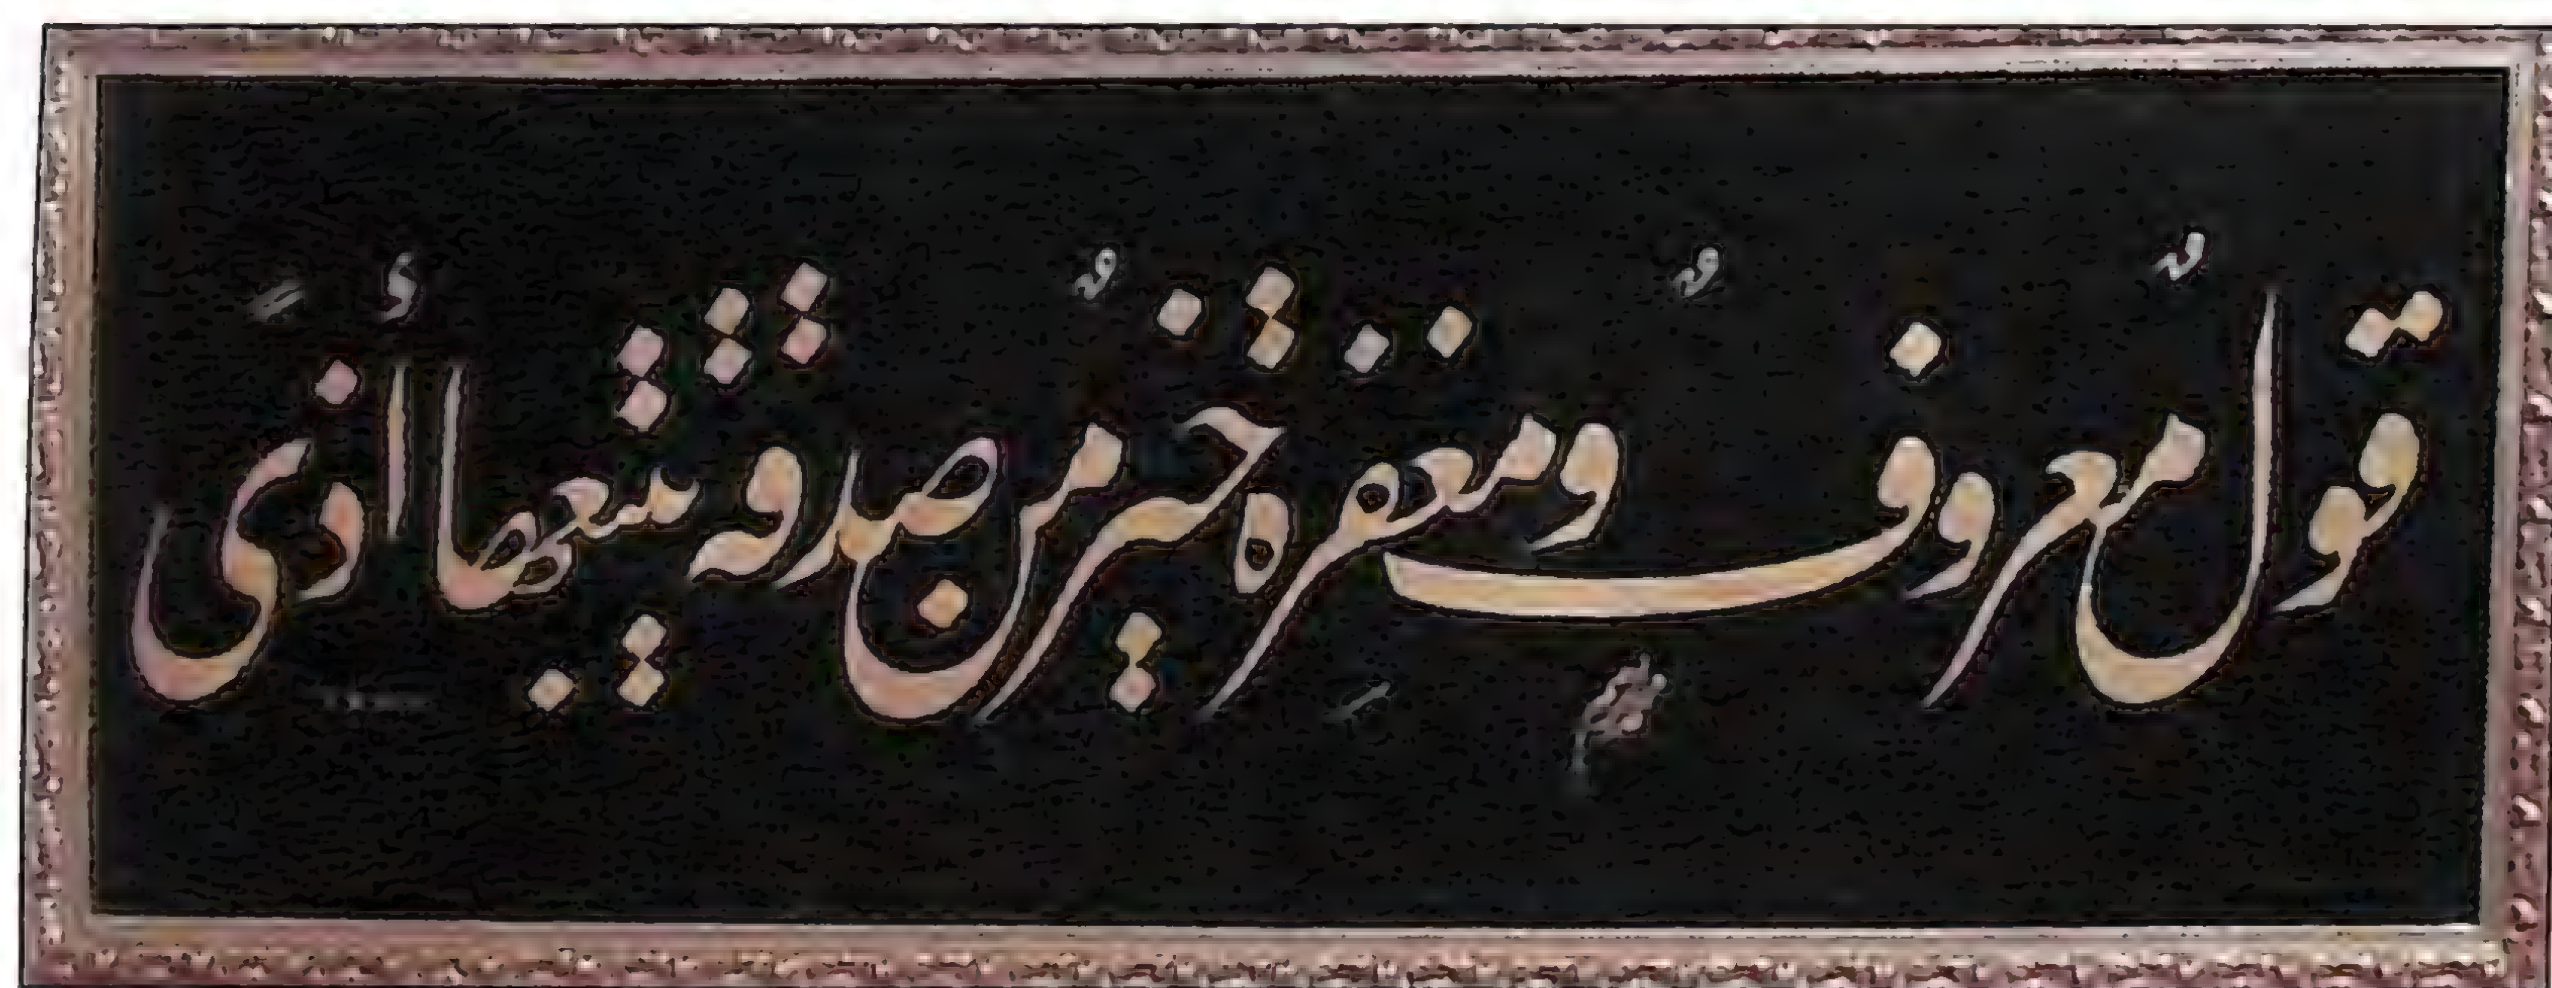 قول معروف ومغفرة خير من صدقة يتبعها أذى